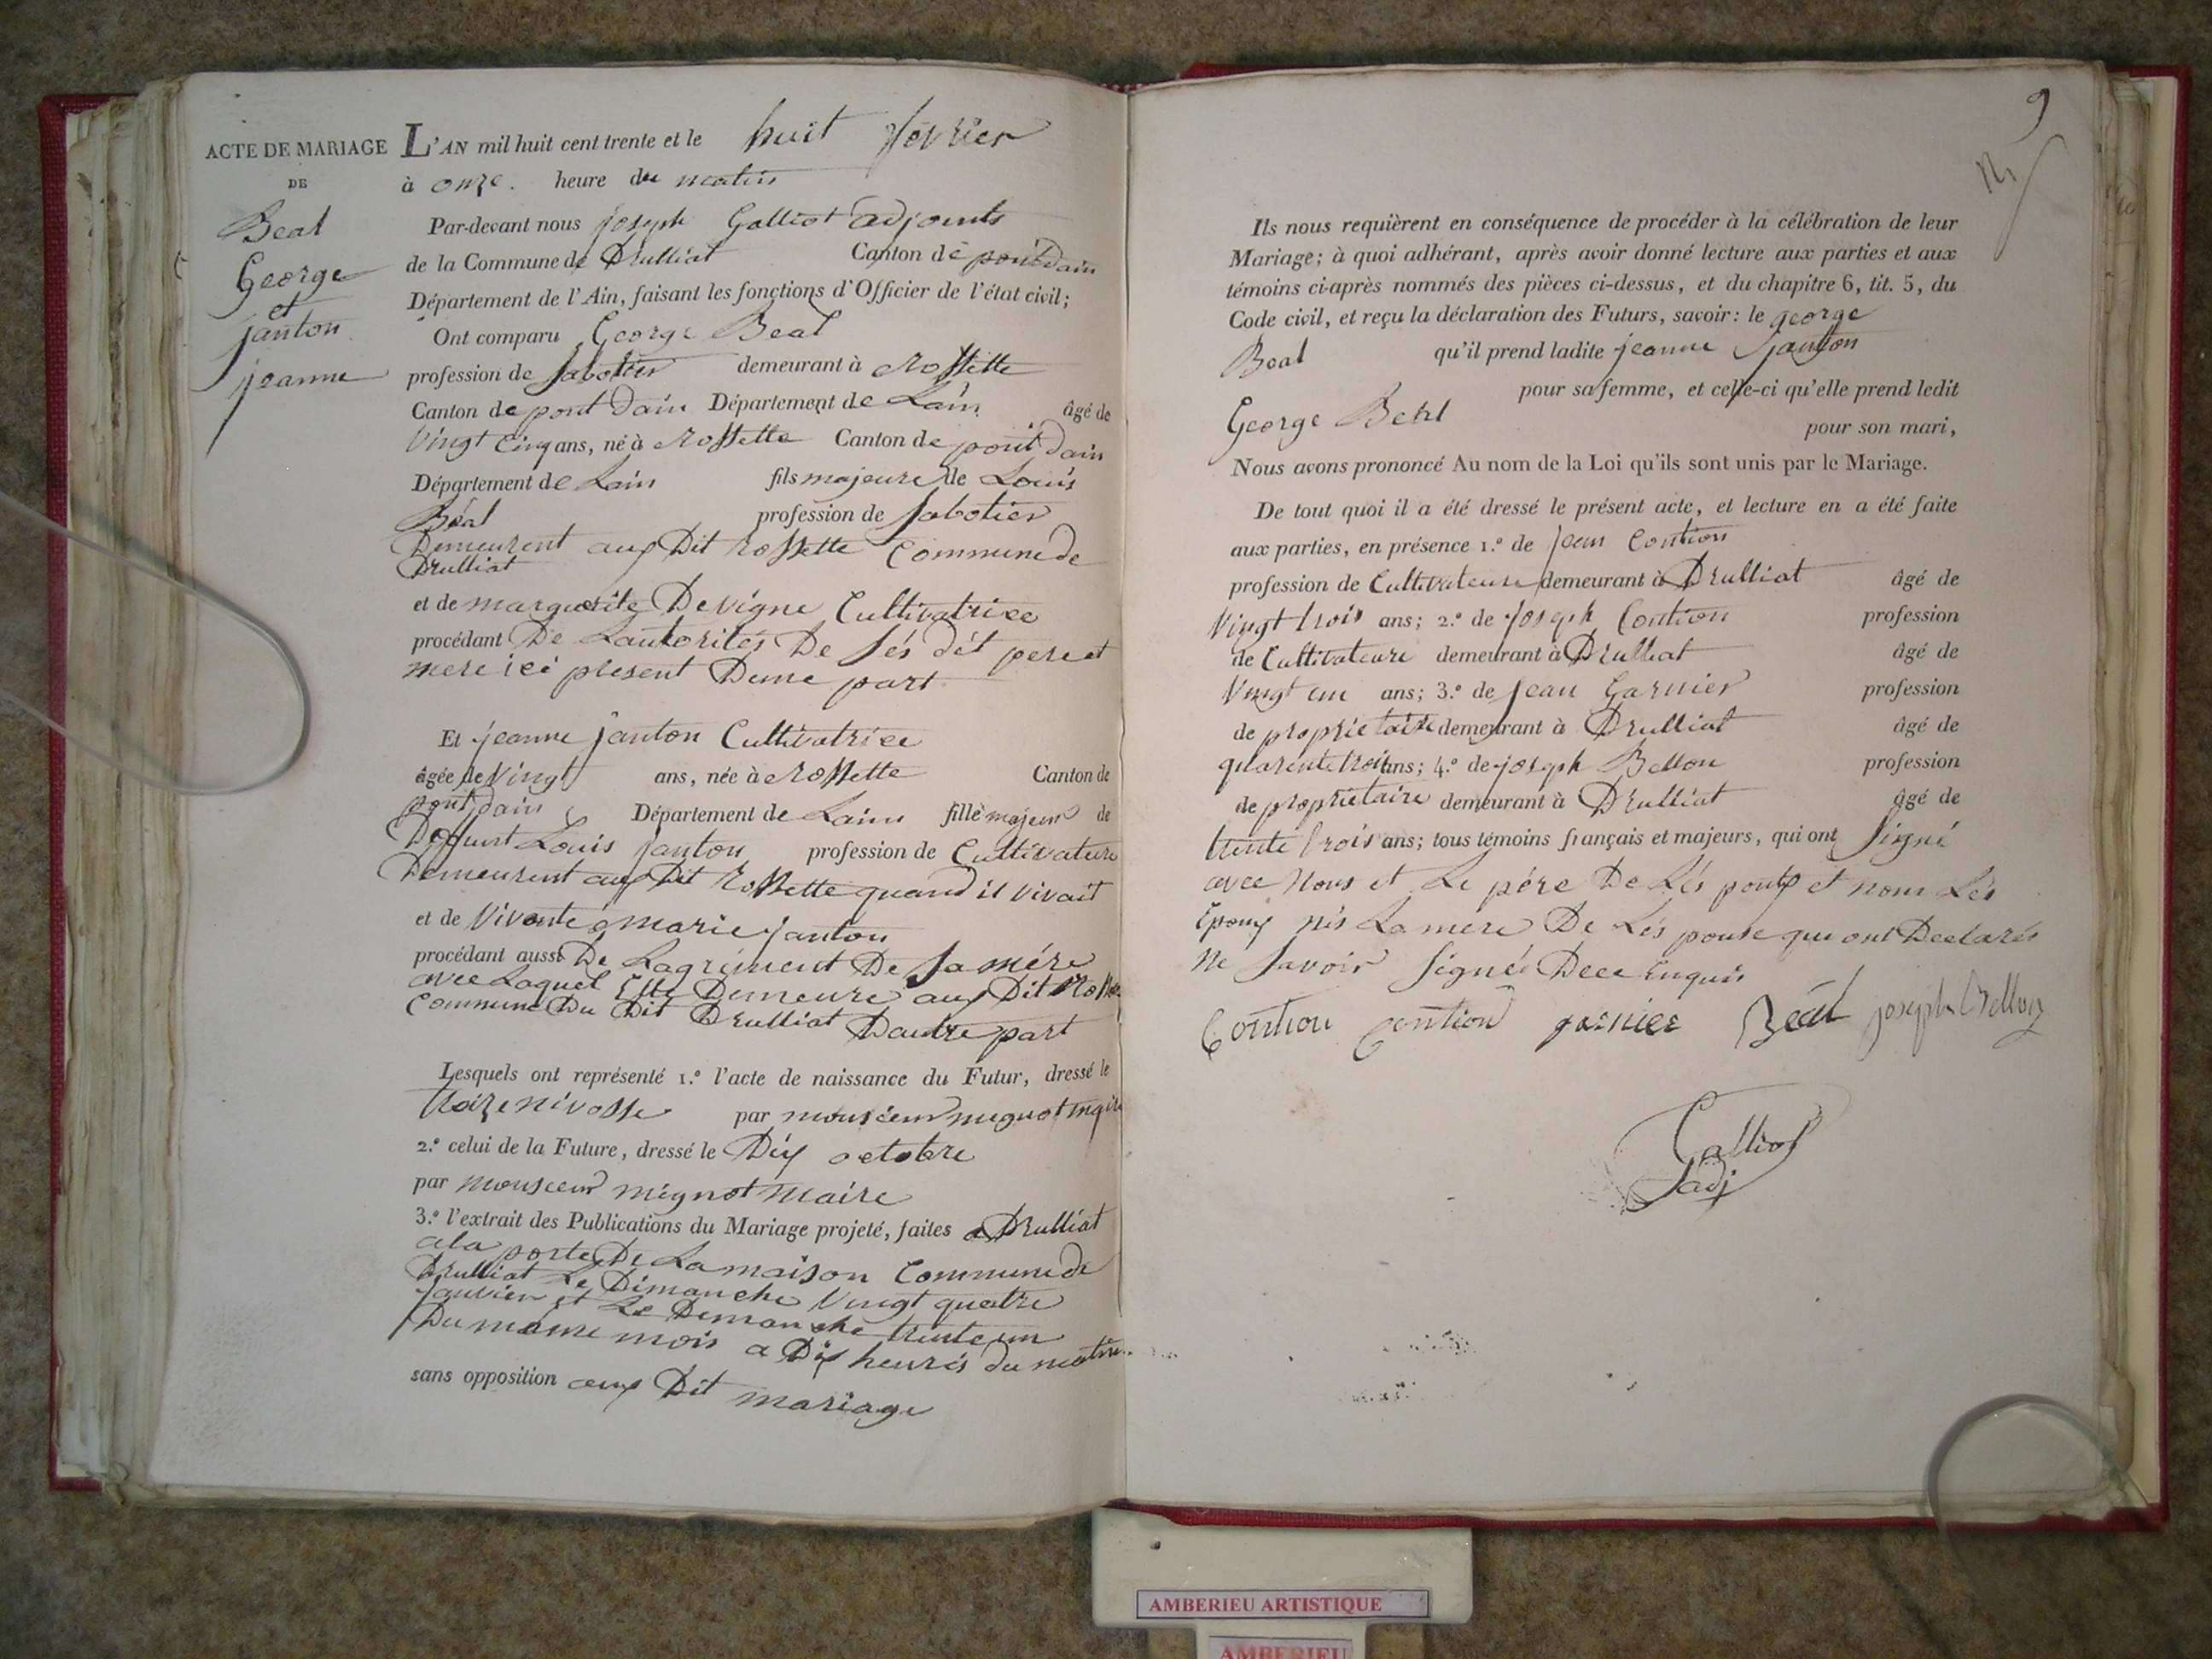 ACTE DE MARIAGE
DE
Beal
George
et
janton
jeanne
L'AN mil huit cent trente et le huit février
à onze heure du matin
Par-devant nous joseph Galliot adjoints
de la Commune de Drulliat Canton de pont Dain
Département de l'Ain, faisant les fonctions d'Officier de l'état civil;
Ont comparu George Beal
profession de Sabotier demeurant à Rossette
Canton de pont Dain Département de Lain âgé de
Vingt Cinq ans, né à Rossette Canton de pont Dain
Département de Lain fils majeure de Louis
Béal profession de Sabotier
Demeurent aux Dit Rossette Commune de
Drulliat
et de marguerite Devigne Cultivatrice
procédant De Lautorités De Sés dét pere et
mere ici présent Dune part
Et jeanne janton Cultivatrice
âgée de Vingt ans, née à Rossette Canton de
pont dain Département de Lain fille majeur de
Deffunt Louis janton profession de Cultivateure
Demeurent aux Dit Rossette quand il vivait
et de Vivante marie janton
procédant aussi De Lagrément De Sa mére
avec Laquel Elle Demeure aux Dit
Commune Du Dit Drulliat Dautre part
Lesquels ont représenté 1.º l'acte de naissance du Futur, dressé le
treize nivosse par mouscieur mignot maire
2.º celui de la Future, dressé le Dix octobre
par mouscieur mignot maire
3.º l'extrait des Publications du Mariage projeté, faites a Drulliat
ala porte De La maison Commune de
Drulliat Le Dimanche Vingt quatre
janvier et Le Dimanche trente un
Du même mois a Dix heures du matin
sans opposition aux Dit mariage
9
Ils nous requièrent en conséquence de procéder à la célébration de leur
Mariage; à quoi adhérant, après avoir donné lecture aux parties et aux
témoins ci-après nommés des pièces ci-dessus, et du chapitre 6, tit. 5, du
Code civil, et reçu la déclaration des Futurs, savoir: le george
Beal qu'il prend ladite jeanne janton
pour sa femme, et celle-ci qu'elle prend ledit
George Beal pour son mari,
Nous avons prononcé Au nom de la Loi qu'ils sont unis par le Mariage.
De tout quoi il a été dressé le présent acte, et lecture en a été faite
aux parties, en présence 1.º de jean Contion
profession de Cultivateure demeurant à Drulliat âgé de
Vingt trois ans; 2.º de joseph Contion profession
de Cultivateure demeurant à Drulliat âgé de
Vingt un ans; 3.º de jean Garnier profession
de proprietaire demeurant à Drulliat âgé de
quarente trois ans; 4.º de joseph Bellon profession
de proprietaire demeurant à Drulliat âgé de
trente trois ans; tous témoins français et majeurs, qui ont Signé
avec Nous et Le pére De Lés poux et nom Lés
Epoux nis La mere De Lés pouse qui ont Declarés
Ne Savoir Signér Dece Enquis
Contion contion garnier Béal joseph Bellon
Galliot
adj
AMBERIEU ARTISTIQUE
AMBERIEU